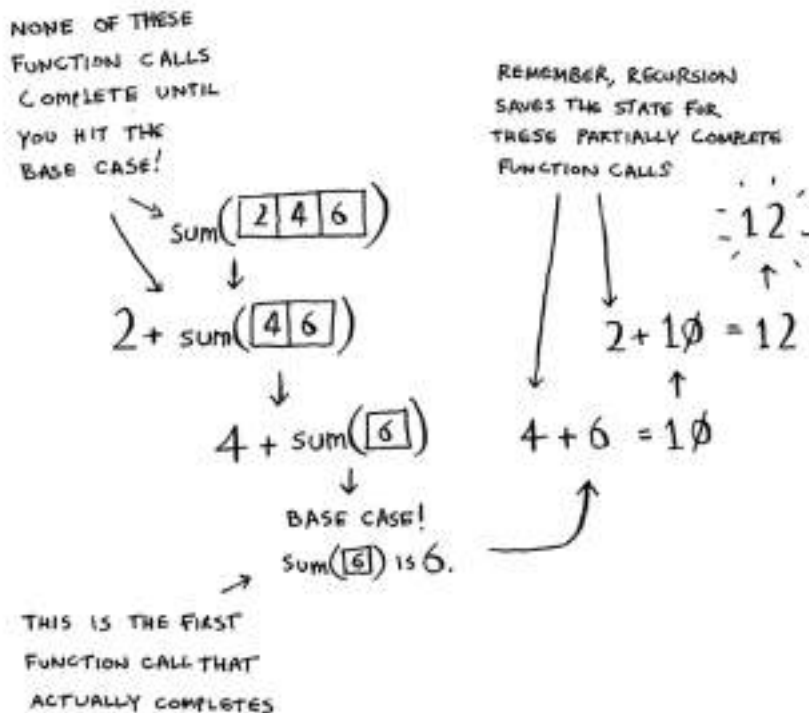 NONE OF THESE
FUNCTION CALLS
COMPLETE UNTIL
YOU HIT THE
BASE CASE!
REMEMBER, RECURSION
SAVES THE STATE FOR
THESE PARTIALLY COMPLETE
FUNCTION CALLS
sum(2 4 6)
2 + sum(4 6)
4 + sum(6)
BASE CASE!
sum(6) is 6.
THIS IS THE FIRST
FUNCTION CALL THAT
ACTUALLY COMPLETES
4 + 6 = 10
2 + 10 = 12
12